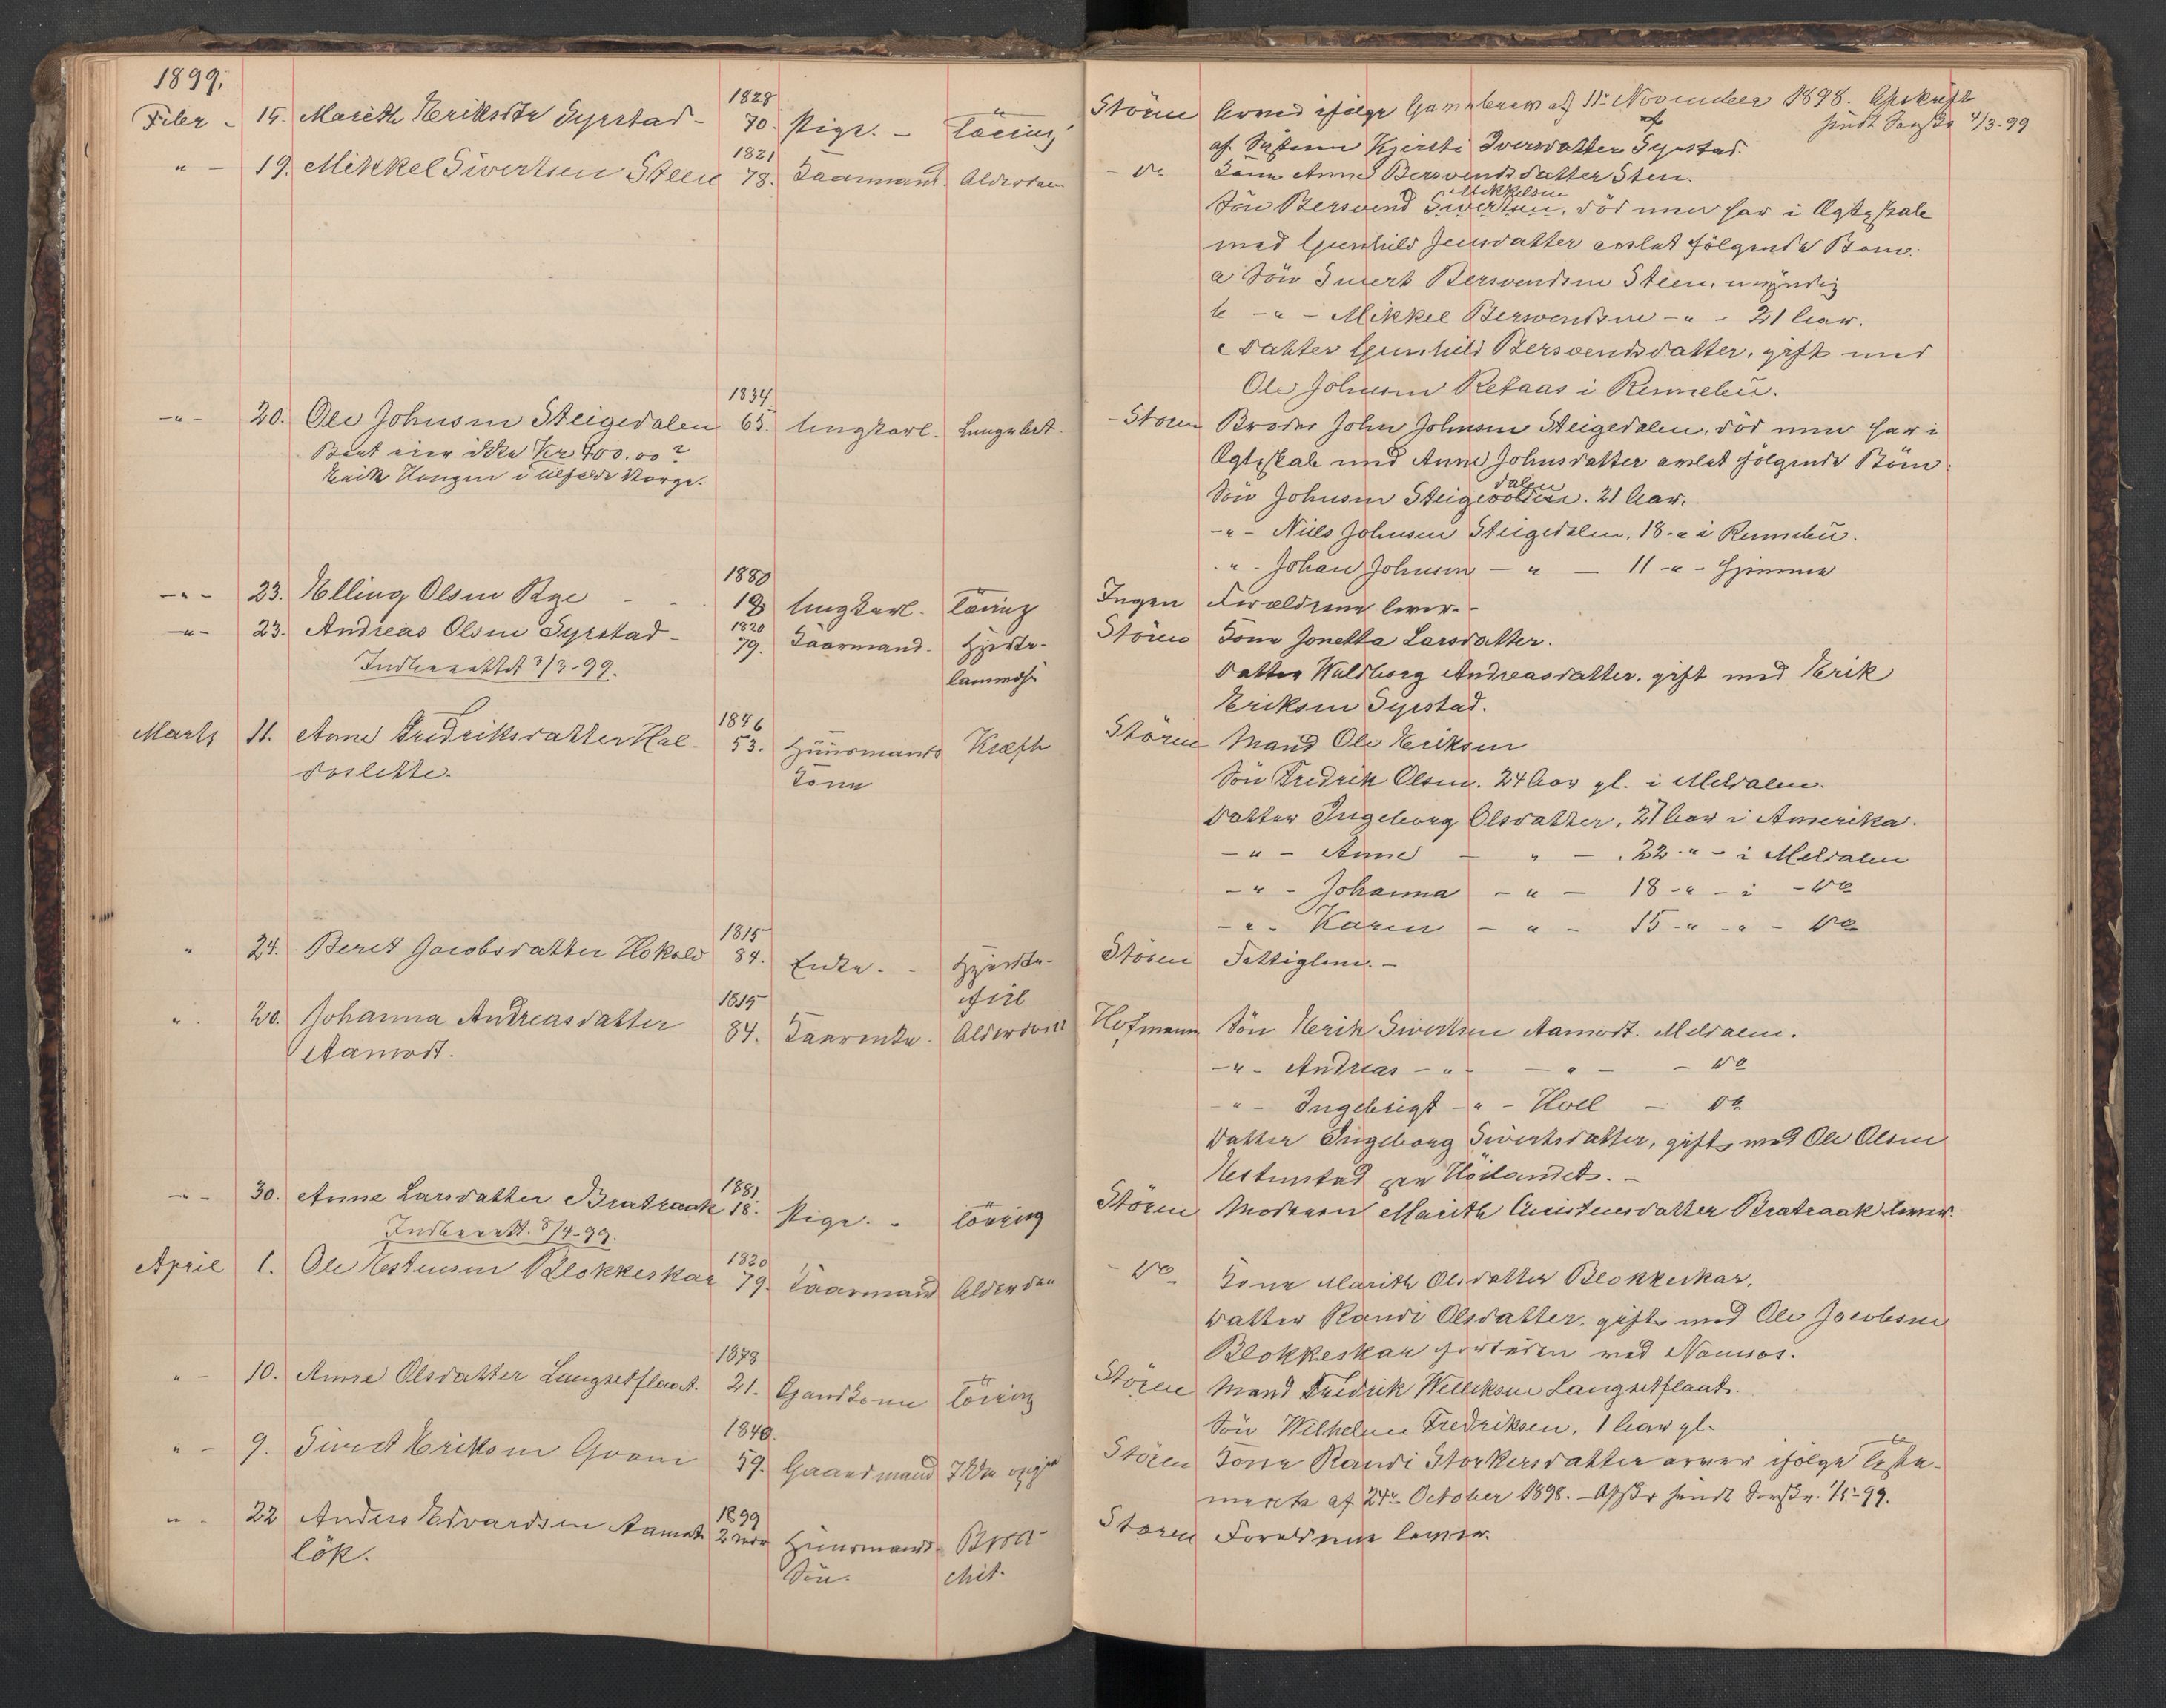 1899.
Feber - 15. Marith Eriksdtr Syrstad - 1828 70. Pige. - Tæring Stören Arves ifölge Gavebrev af 11te November 1898. Afskrift
sendt 4/3-99
af Kjersti Iversdatter Syrstad.
" - 19. Mikkel Sivertsen Steen 1821 78. Kaarmand. Alderdom - do Kone Anne Bersvendsdatter Sten.
Sön Bersvend Sivertsen, Mikkelsen död men har i Ægteskab
med Gunhild Jensdatter avlet fölgende Börn:
a Sön Sivert Bersvendsen Steen, umyndig
b - " - Mikkel Bersvendsen - " - 21 Aar.
c Datter Gunhild Bersvendsdatter, gift med
Ole Johnsen Retaas i Rennebu.
- " - 20. Ole Johnsen Steigedalen 1834. 65. Ungkarl. Lungebet. - Støren Broder John Johnsen Steigedalen, död men har i
Boet eier ikke Kr 400.00?
Ægteskab med Anne Johnsdatter avlet fölgende Börn:
Erik Haugen i tilfælde Værge.
Sön Johnsen Steigevolden dalen. 21 Aar.
- " - Niels Johnsen Steigedalen. 18 - " i Rennebu.
" - Johan Johnsen - " - 11 - " - hjemme
- " - 23. Elling Olsen Rye 1880 18 Ungkarl. Tæring Ingen Forældrene lever. -
- " - 23. Andreas Olsen Syrstad - 1820 79. Kaarmand. Hjerte-
lammelse Stören Kone Jonetta Larsdatter.
Indberettet 3/3-99.
Datter Waldborg Andreasdatter, gift med Erik
Eriksen Syrstad.
Marts 11. Anne Fredriksdatter Hal-
doslette. 1846 53. Huusmands
Kone Kræft Stören Mand Ole Eriksen
Sön Fredrik Olsen. 24 Aar gl. i Meldalen.
Datter Ingeborg Olsdatter, 27 Aar i Amerika.
- " - Anne - " - . 22 - " - i Meldalen
- " - Johanna - " - 18 - " - i - do
- " - Karen - " - 15 - " - " - do
" 24. Beret Jacobsdatter Hokold 1815 84. Enke. - Hjerte-
feil Stören Fattiglem. -
" . 20. Johanna Andreasdatter
Aamodt. 1815 84. Kaarenke. Alderdom Hofmann Sön Erik Sivertsen Aamodt. Meldalen.
- " - Andreas - " - - " - - do
- " - Ingebrigt - " - Hoel - do
Datter Ingeborg Sivertsdatter, gift med Ole Olsen
Hestenstad paa Höilandet. -
- " - 30. Anne Larsdatter Bratraak 1881. 18. Pige. - Tæring Stören Moderen Marith Christensdatter Bratraak lever.
Indberett. 8/4-99.
April 1. Ole Estensen Blokkeskar 1820 79. Kaarmand Alderdom - do Kone Marith Olsdatter Blokkeskar.
Datter Randi Olsdatter, gift med Ole Jacobsen
Blokkeskar fortiden ved Namsos.
" - 10. Anne Olsdatter Langsetflaat. 1878 21. Gaardkone Tæring Stören Mand Fredrik Willeksen Langsetflaat.
Sön Wilhelm Fredriksen, 1 Aar gl.
" - 9. Sivert Eriksen Gvam 1840. 59. Gaardmand Stören Kone Randi Storkersdatter arver ifölge Testa-
mente af 24de October 1898. - Afskr sendt 1/5-99.
" . 22 Anders Edvardsen Aamot
lök. 1899 2 mdr Huusmands
Sön. Bron
chit. Støren Forældrene lever.